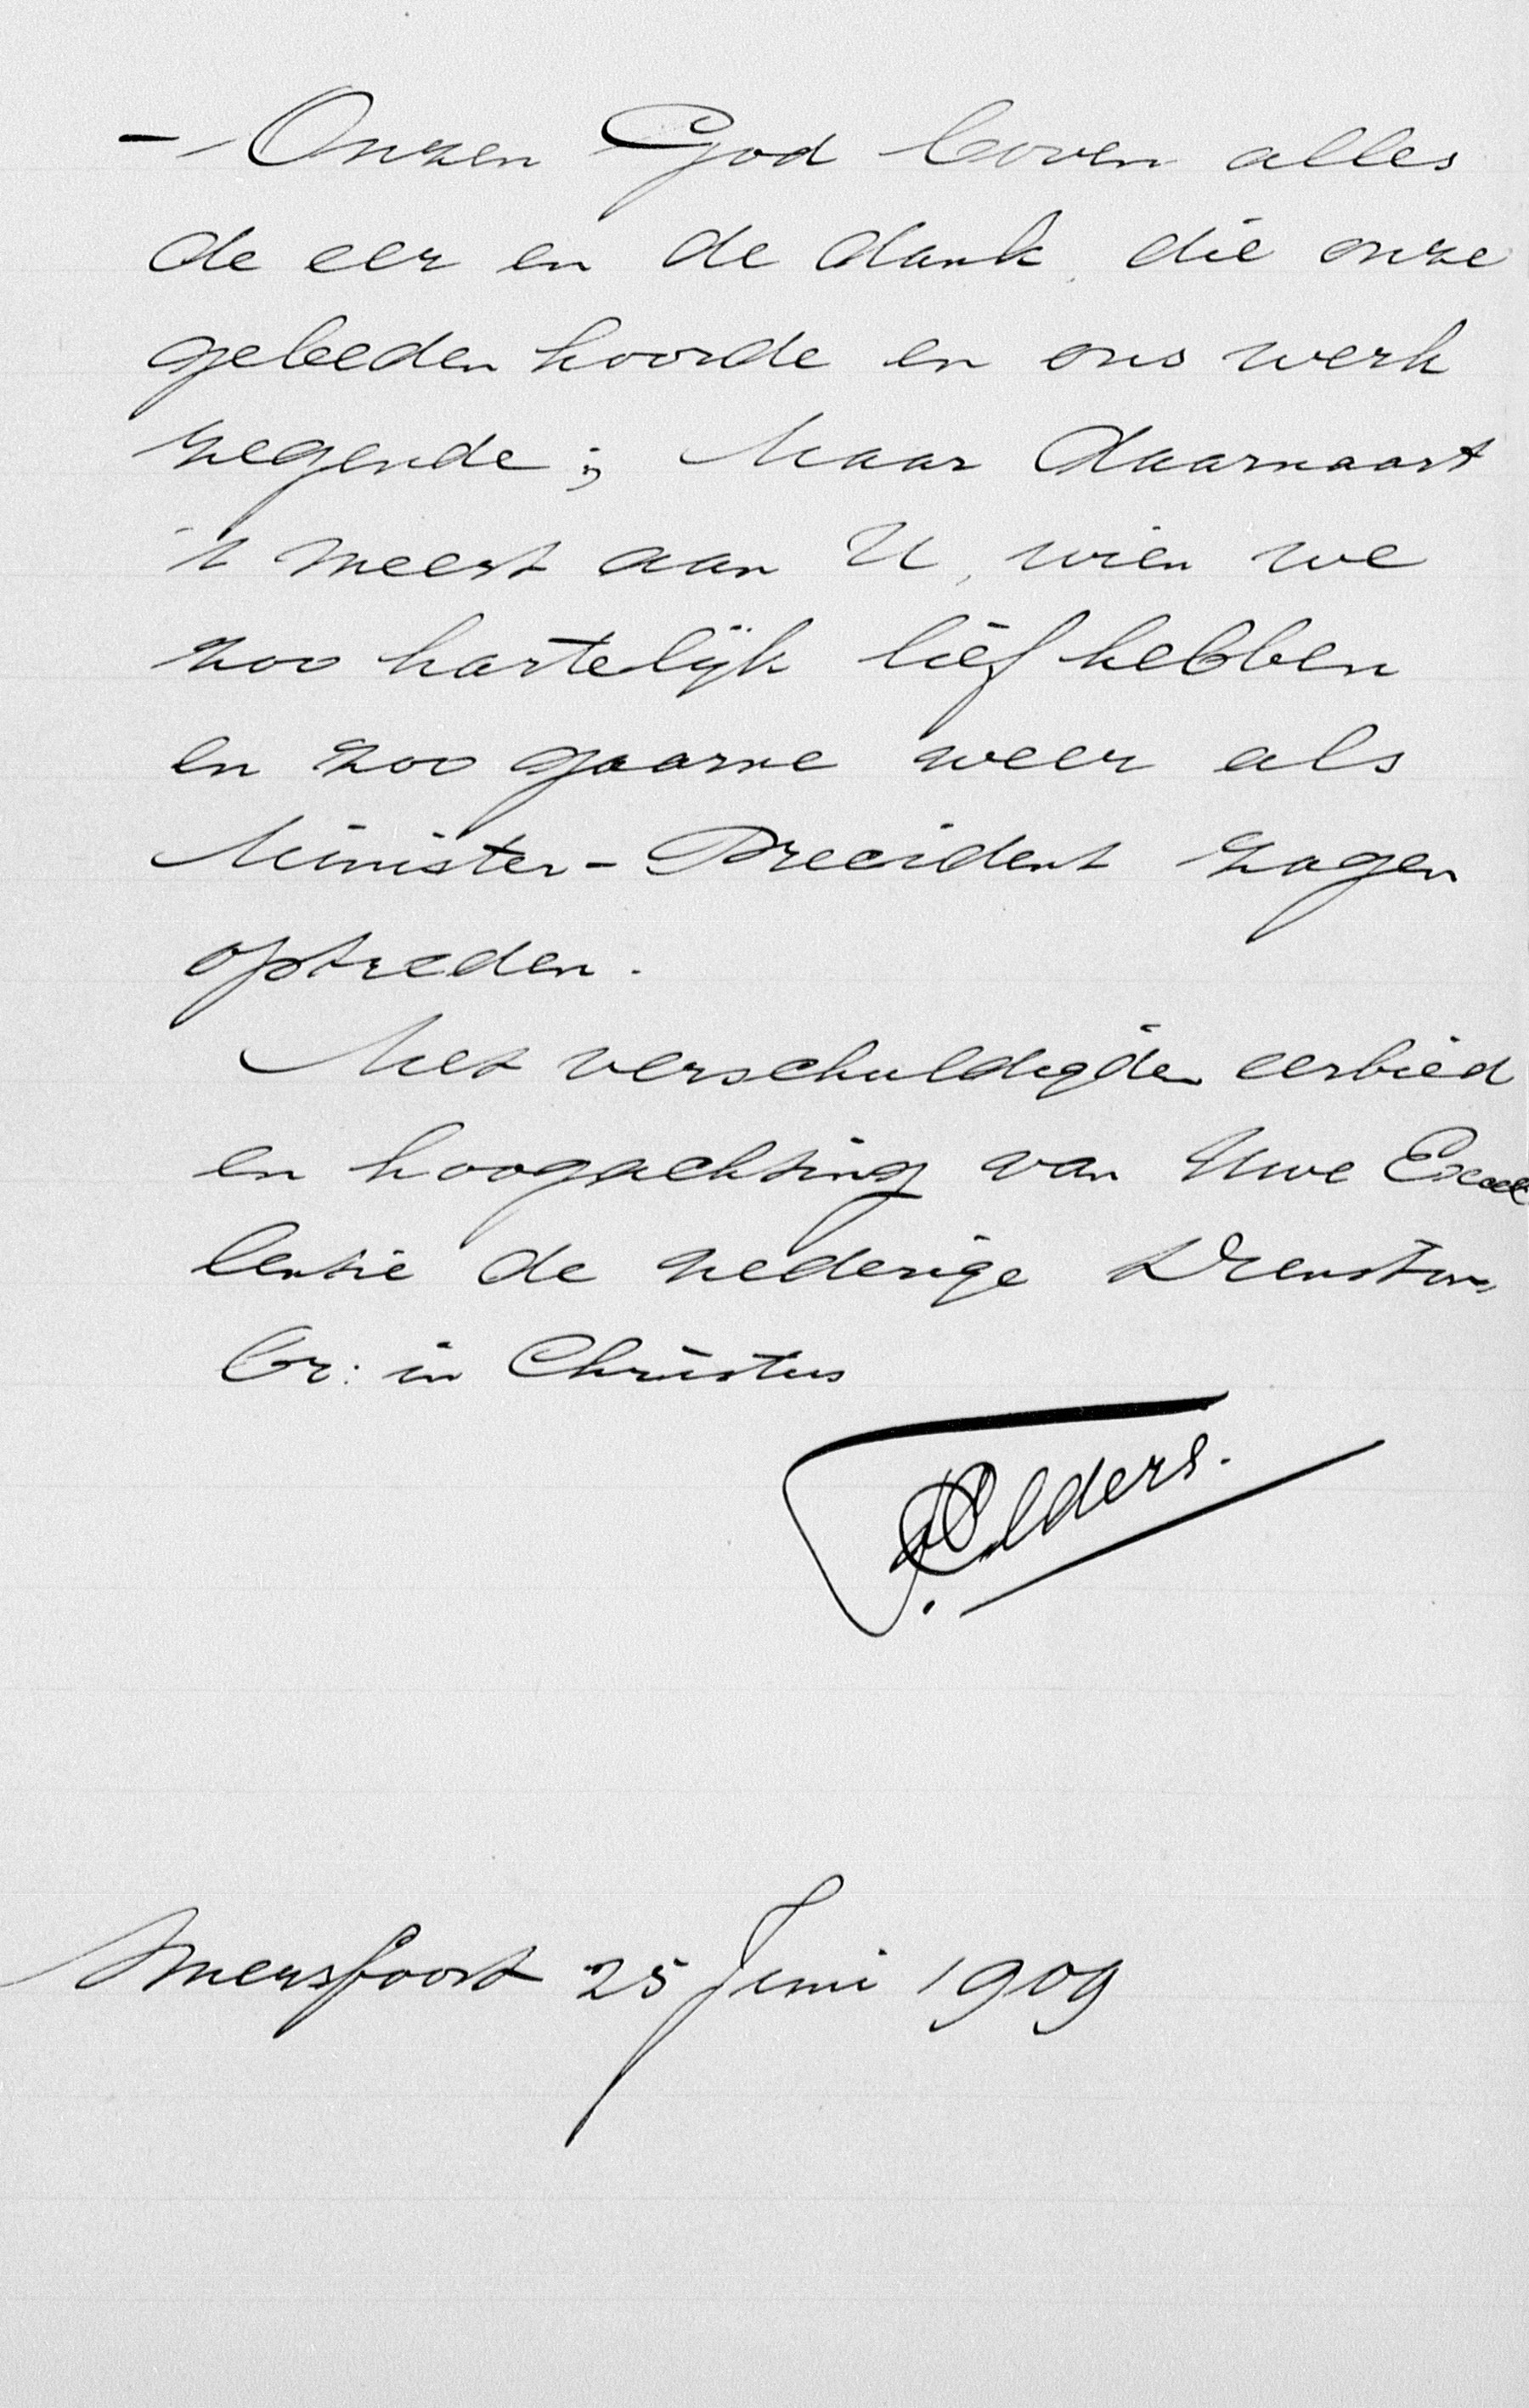 — Onzen God boven alles
de eer en de dank, die onze
gebeden hoorde en ons werk
zegende; Maar daarnaast
't meest aan U, wien we
zoo hartelijk lief hebben
en zoo gaarne weer als
Minister-Precident zagen
optreden.
Met verschuldigden eerbied
en hoogachting van Uwe Excel
lentie de nederige Dienstw
br: in Christus
Elders.
Amersfoort 25 Juni 1909